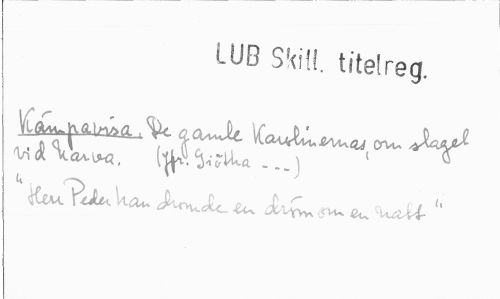 LUB Skill. titelreg.
Kämpavisa. De gamle Karolinernas, om slaget
vid Narva. (Jfr. Giötha ---)
"Herr Peder han dromde en dröm om en natt"